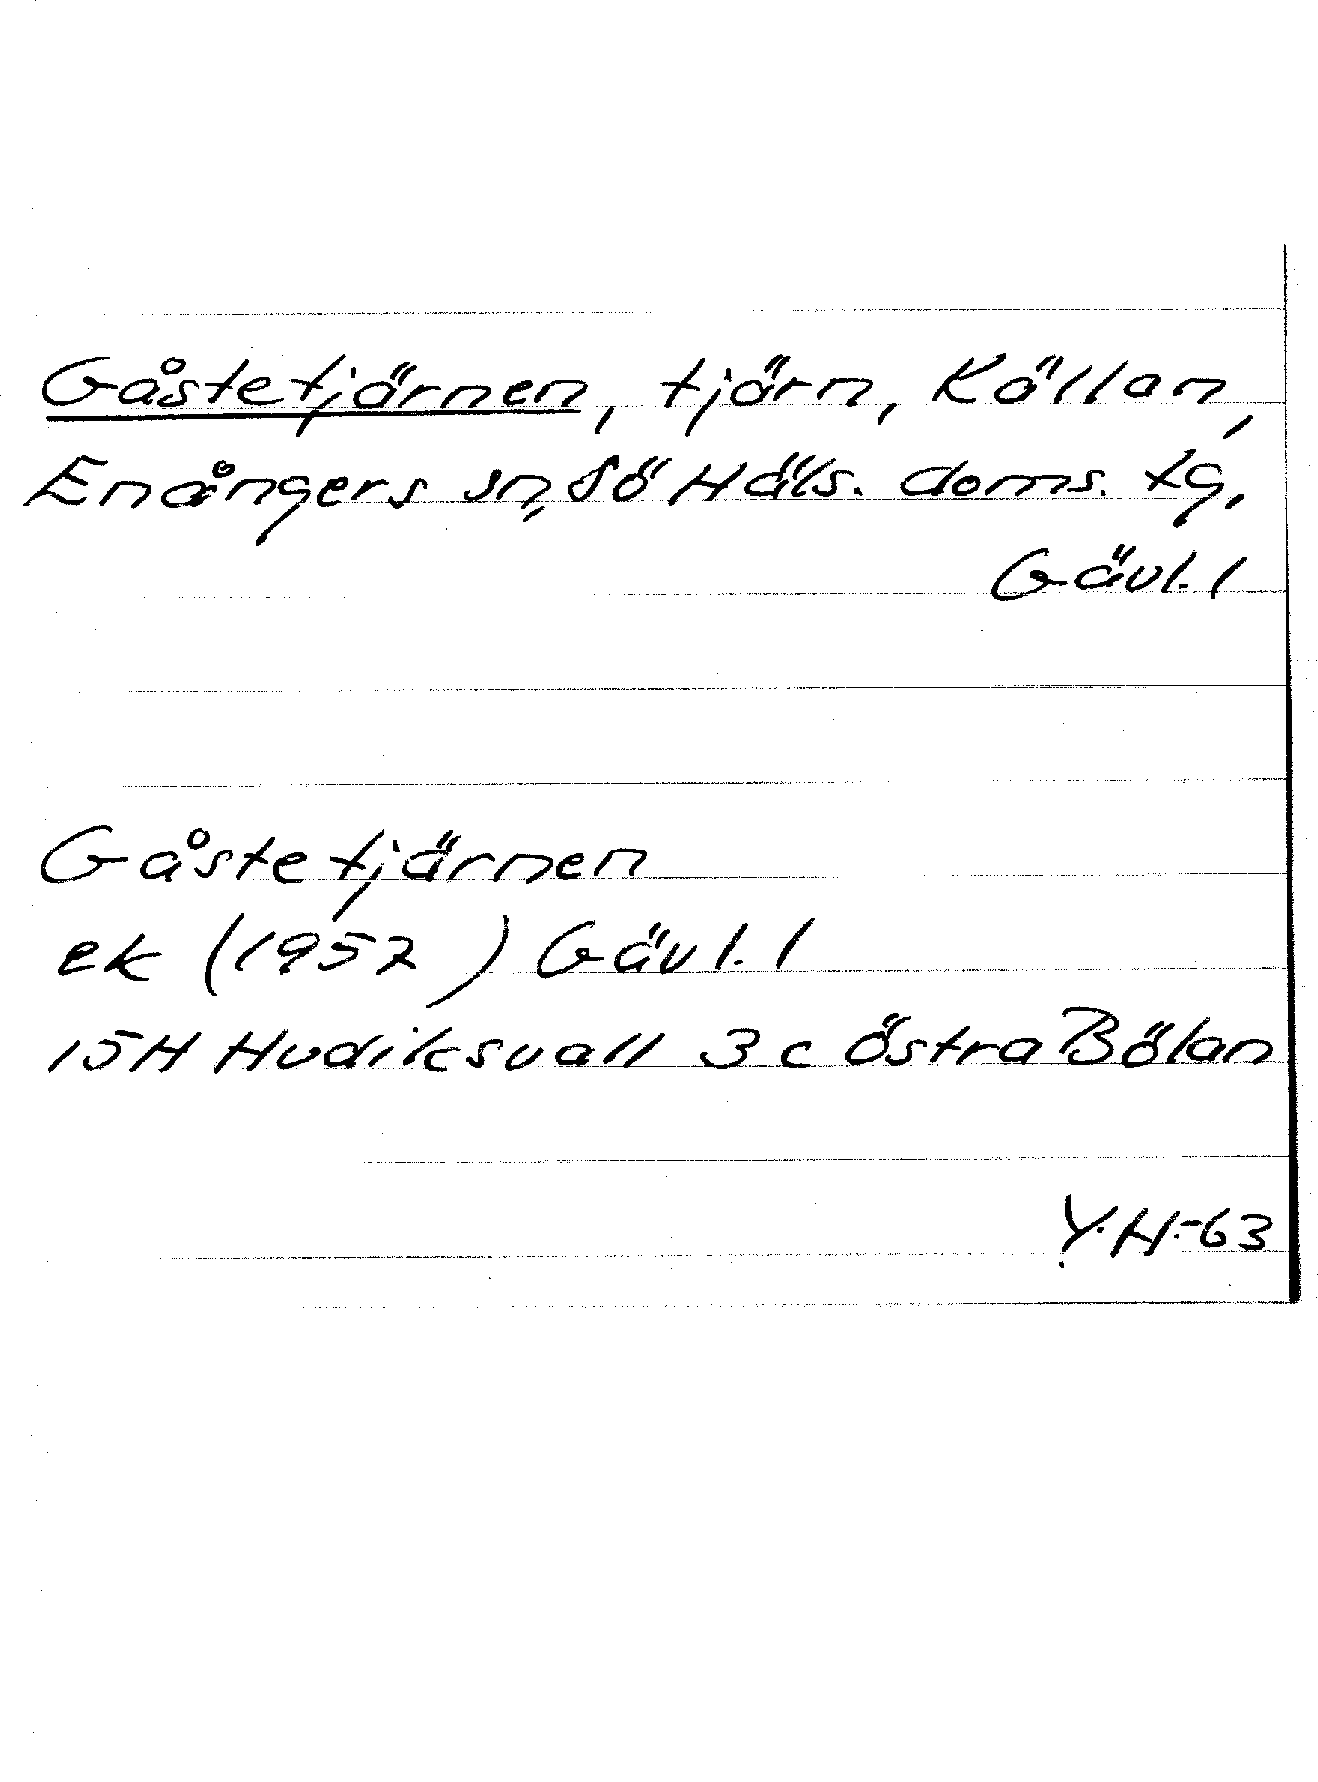 Gåstetjärnen, tjärn, Källan,
Enångers sn, Sö Häls. doms. tg,
Gävl. l
Gåstetjärnen
ek (1957) Gävl. l
15H Hudiksvall 3c Östra Bölan
Y.H.-63